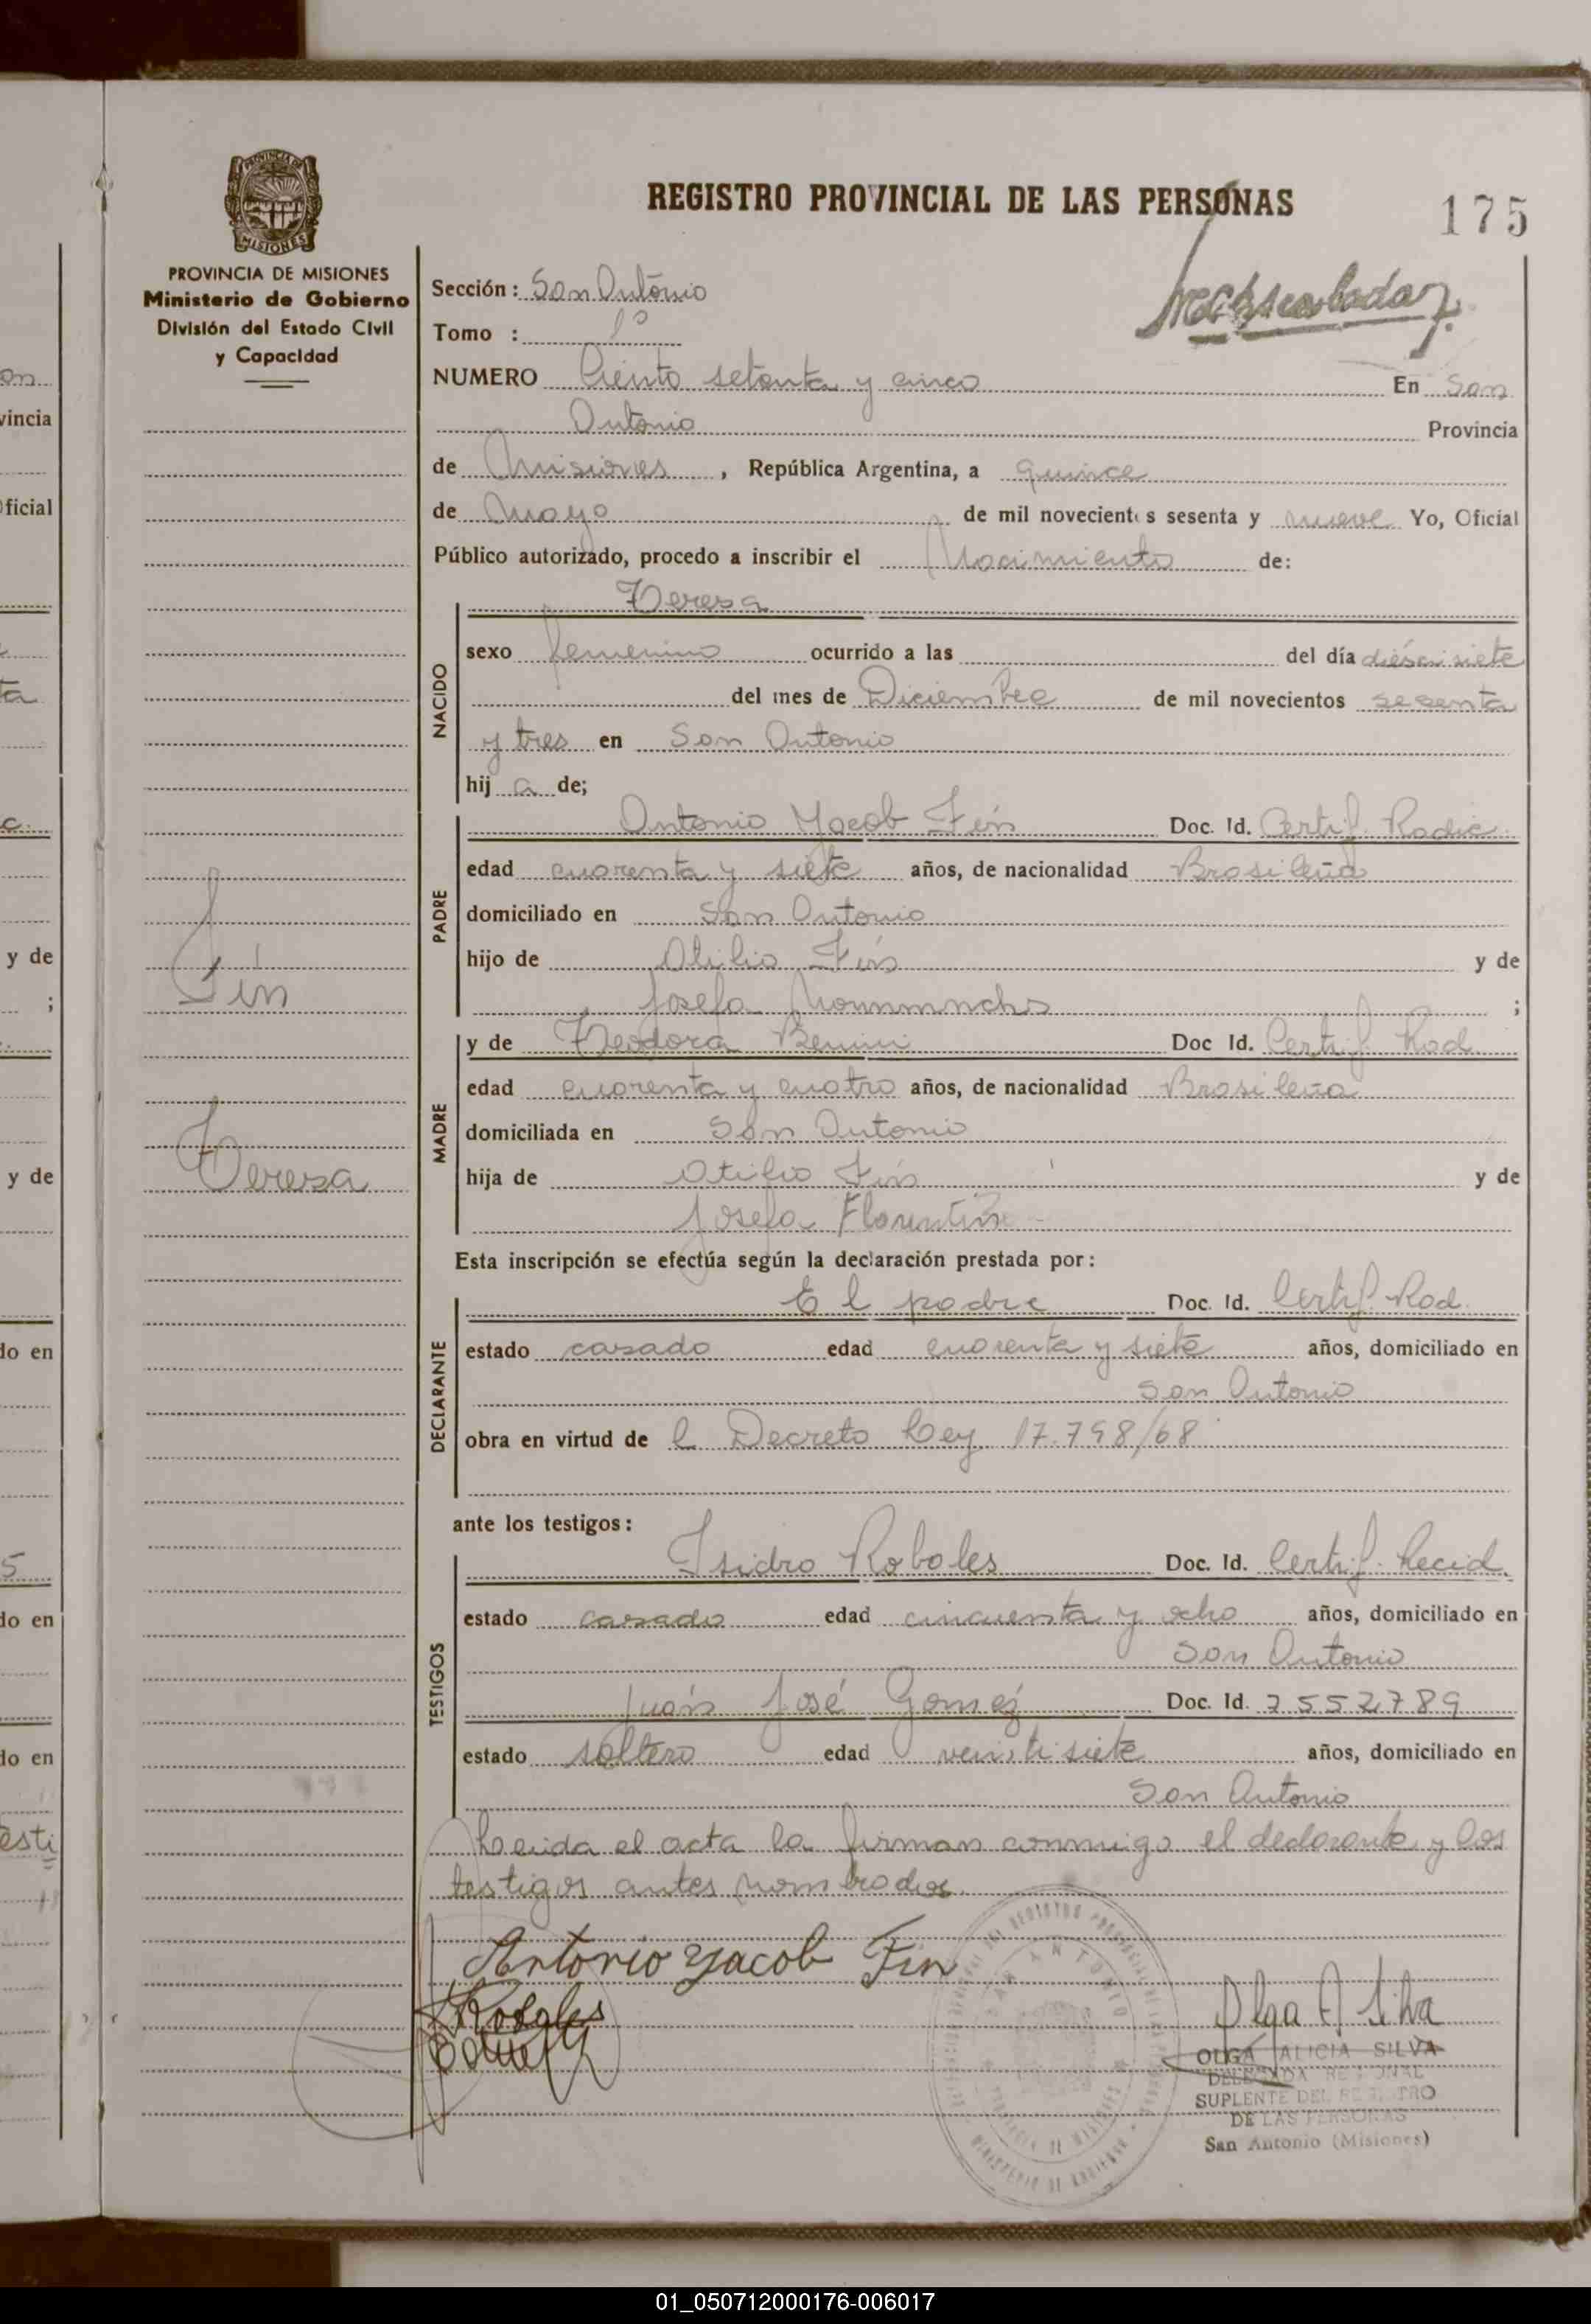 REGISTRO PROVINCIAL DE LAS PERSONAS
175
PROVINCIA DE MISIONES
MISIONES
PROVINCIA DE MISIONES
Ministerio de Gobierno
División del Estado Civil
y Capacidad
Sección: San Antonio
Tomo : 1º
NUMERO Ciento setenta y cinco En San
Antonio Provincia
de Misiones, República Argentina, a quince
de Mayo de mil novecientos sesenta y nueve Yo, Oficial
Público autorizado, procedo a inscribir el Nacimiento de:
NACIDO
Teresa
sexo femenino ocurrido a las del día diesisiete
del mes de Diciembre de mil novecientos sesenta
y tres en San Antonio
hij a de;
PADRE
Antonio Yacob Fin Doc. Id. Certif. Radic.
edad cuarenta y siete años, de nacionalidad Brasileña
domiciliado en San Antonio
hijo de Otilio Fin y de
Josefa ;
MADRE
y de Teodora Benini Doc Id. Certif. Rad.
edad cuarenta y cuatro años, de nacionalidad Brasileña
domiciliada en San Antonio
hija de Otilio Fin y de
Josefa Florentin
Fin
Teresa
Esta inscripción se efectúa según la declaración prestada por:
DECLARANTE
El padre Doc. Id. Certif. Rad.
estado casado edad cuarenta y siete años, domiciliado en
San Antonio
obra en virtud de l Decreto Ley 17.798/68
ante los testigos:
TESTIGOS
Isidro Robales Doc. Id. Certif. Recid.
estado casado edad cincuenta y ocho años, domiciliado en
San Antonio
Juan José Gomez Doc. Id. 7552789
estado soltero edad veinti siete años, domiciliado en
San Antonio
Leida el acta la firman conmigo el declarante y los
testigos antes nombrados.
Antonio Yacob Fin
Olga A Silva
OLGA ALICIA SILVA
DELEGADA REGIONAL
SUPLENTE DEL REGISTRO
DE LAS PERSONAS
San Antonio (Misiones)
on
vincia
Oficial
ta
y de
;
y de
do en
5
do en
do en
esti
01_050712000176-006017